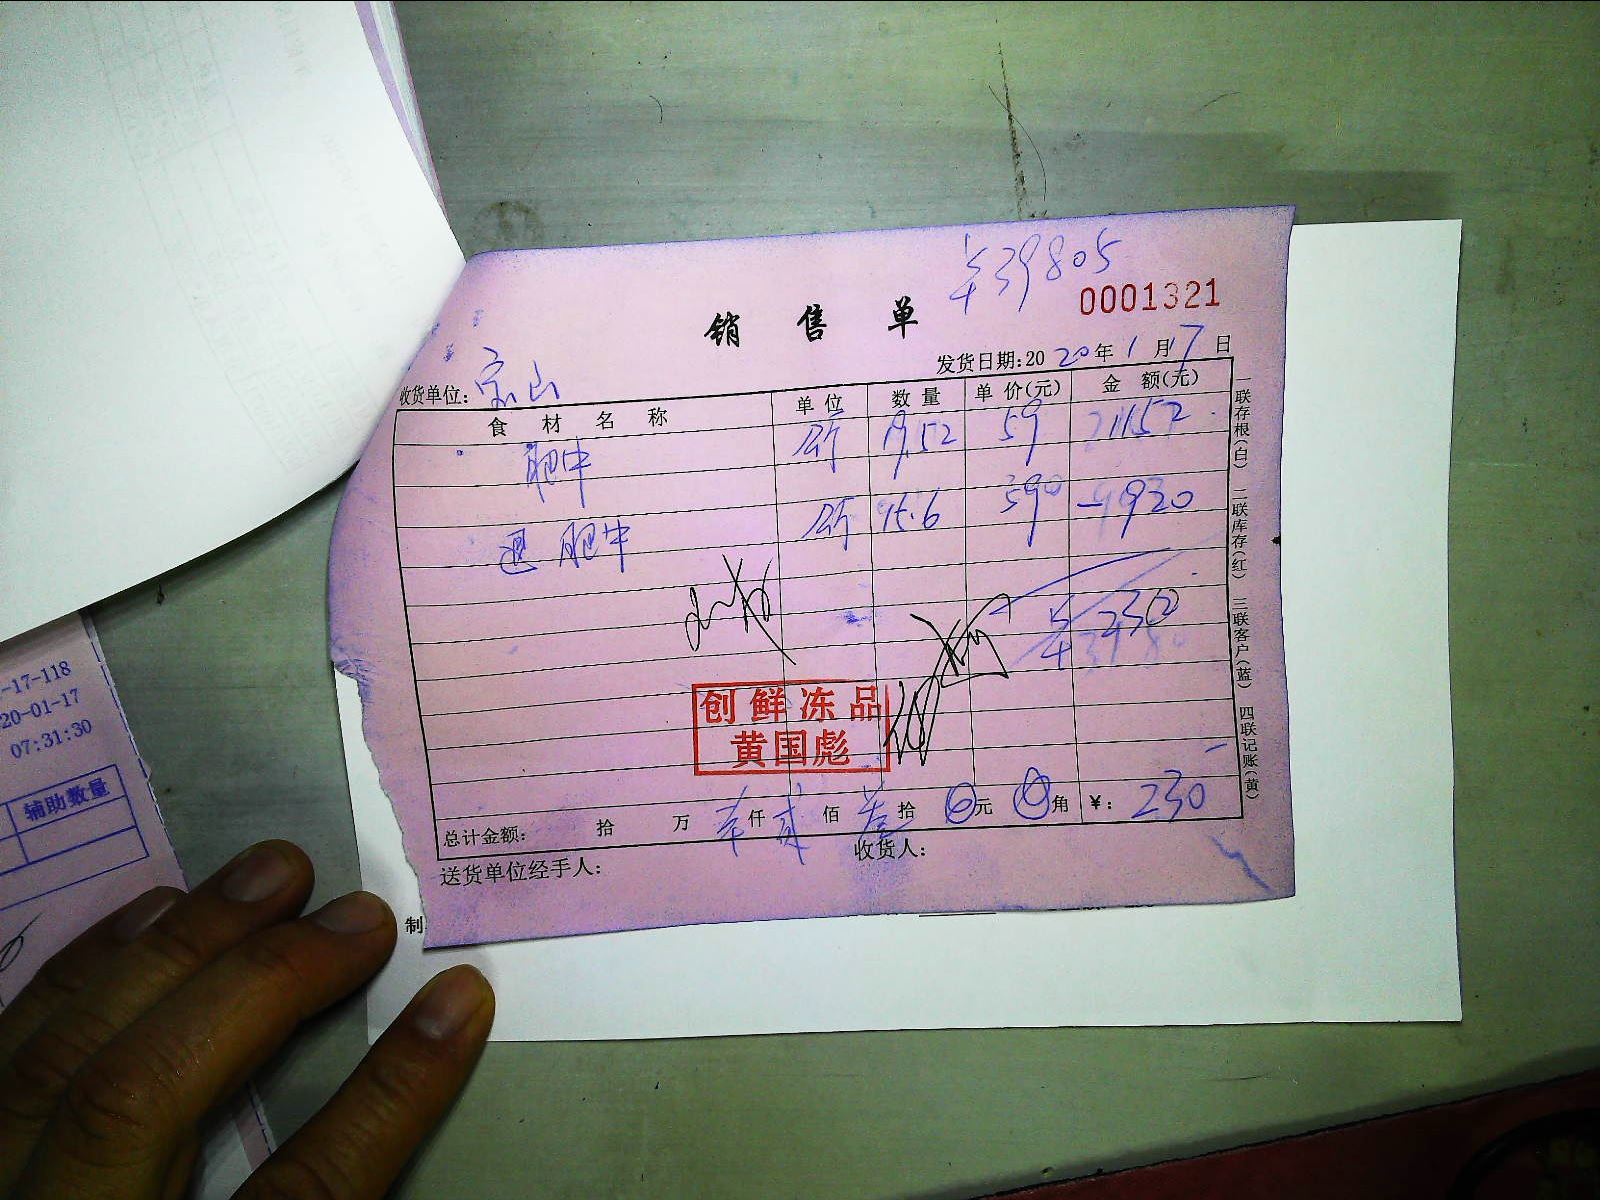 ￥39805
0001321
销售单
发货日期:2020年1月17日
收货单位:宝山
食材名称 单位 数量 单价(元) 金额(元)
肥牛 公斤 19.52 59 1152
退肥牛 公斤 15.6 59 -920
￥ 230
创鲜冻品
黄国彪
总计金额: 拾 万 仟 贰 佰 叁 拾 0元 0角 ￥: 230
送货单位经手人: 收货人:
一联存根(白) 二联库存(红) 三联客户(蓝) 四联记账(黄)
-17-118
20-01-17
07:31:30
辅助数量
制